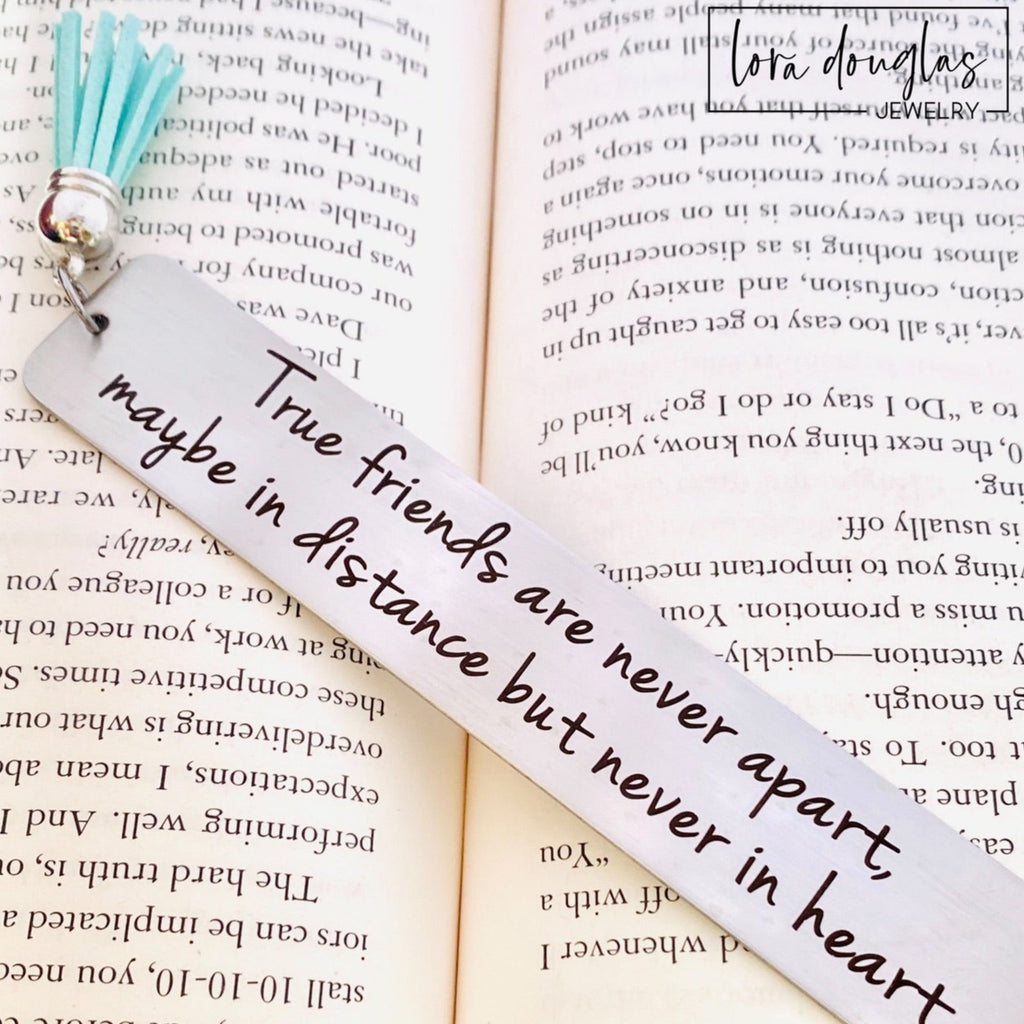 lora douglas
JEWELRY
True friends are never apart,
maybe in distance but never in heart
ing—because I
take the news sitting do
Looking back,
I decided he needed
poor. He was political
started out as adequa
fortable with my auth
was promoted to being
our company for
Dave was
I ple
late. An
ly, we rare
ey, really?
If or a colleague you
at work, you need to ha
these competitive times. So
overdelivering is what our
expectations, I mean abo
performing well. And I
The hard truth is, ou
iors can be implicated a
stall 10-10-10, you need
I've found that many people assign the
sound
the source of your stall may
anything.
yourself that you have work to
ity is required. You need to stop, step
overcome your emotions, once again
ction that everyone is in on something
almost nothing is as disconcerting as
ction, confusion, and anxiety of the
ver, it's all too easy to get caught up in
to a “Do I stay or do I go?” kind of
0, the next thing you know, you'll be
ing.
is usually off.
viting you to important meeting
u miss a promotion. Your
y attention—quickly-
gh enough.
t too. To sta
plane a
“You
off with a
d whenever I